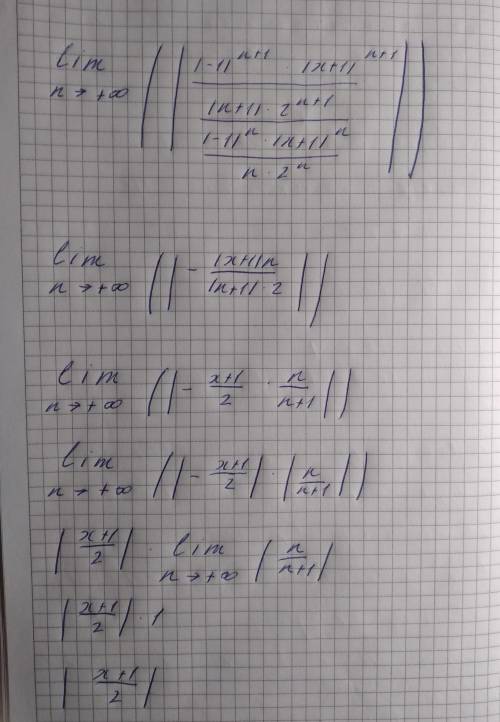 lim n→+∞ (|((-1)^(n+1) · (x+1)^(n+1))/((n+1) · 2^(n+1)) / ((-1)^n · (x+1)^n)/(n · 2^n)|)
lim n→+∞ (|- ((x+1)n)/((n+1) · 2)|)
lim n→+∞ (|- (x+1)/2 · n/(n+1)|)
lim n→+∞ (|- (x+1)/2| · |n/(n+1)|)
|(x+1)/2| · lim n→+∞ (n/(n+1))
|(x+1)/2| · 1
|(x+1)/2|